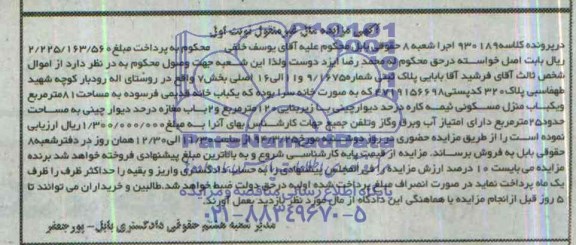 آگهی مزایده مال غیرمنقول نوبت اول
درپرونده کلاسه ۹۳۰۱۸۹ اجرا شعبه ۸ حقوقی بابل محکوم علیه آقای یوسف خلقی محکوم به پرداخت مبلغ ۲/۲۲۵/۱۶۳/۵۶۰
ریال بابت اصل خواسته درحق محکوم له محمد رضا ایزد دوست ولذا این شعبه جهت وصول محکوم به در نظر دارد از اموال
شخص ثالث آقای فرشید آقا بابایی پلاک ثبتی شماره ۹/۱۶۷۵ و۱۰ الی ۱۶ اصلی بخش ۷ واقع در روستای اله رودبار کوچه شهید
طهماسبی پلاک ۳۲۰ کدپستی که به صورت خانه سرا بوده که یکباب خانه قدیمی فرسوده به مساحت ۸۱ مترمربع
ویکباب منزل مسکونی نیمه کاره درحد دیوارچینی با زیربنایی ۱۲۰ مترمربع و ۲ باب مغازه درحد دیوار چینی به مساحت
حدود ۲۵ مترمربع دارای امتیاز آب وبرق وگاز وتلفن جمیع جهات کارشناس بهای آنرا به مبلغ ۱/۳۰۰/۰۰۰/۰۰۰ ریال ارزیابی
نموده است را از طریق مزایده حضوری در روز الی ۱۲/۳۰ همان روز در دفتر شعبه ۸
حقوقی بابل به فروش برساند. مزایده از قیمت پایه کارشناسی شروع و به بالاترین مبلغ پیشنهادی فروخته خواهد شد برنده
مزایده می بایست ۱۰ درصد ارزش مزایده را فی المجلس به حساب دادگستری واریز و بقیه را حداکثر ظرف
یک ماه پرداخت نماید در صورت انصراف مبلغ پرداخت شده اولیه درحق دولت ضبط خواهد شد. طالبین و خریداران می توانند تا
۵ روز قبل از انجام مزایده با هماهنگی این دادگاه از مال مورد نظر بازدید بعمل آورند.
پایگاه اطلاع رسانی مناقصه و مزایده
۰۲۱-۸۸۳۴۹۶۷۰-۵
مدیر شعبه هشتم حقوقی دادگستری بابل - پورجعفر